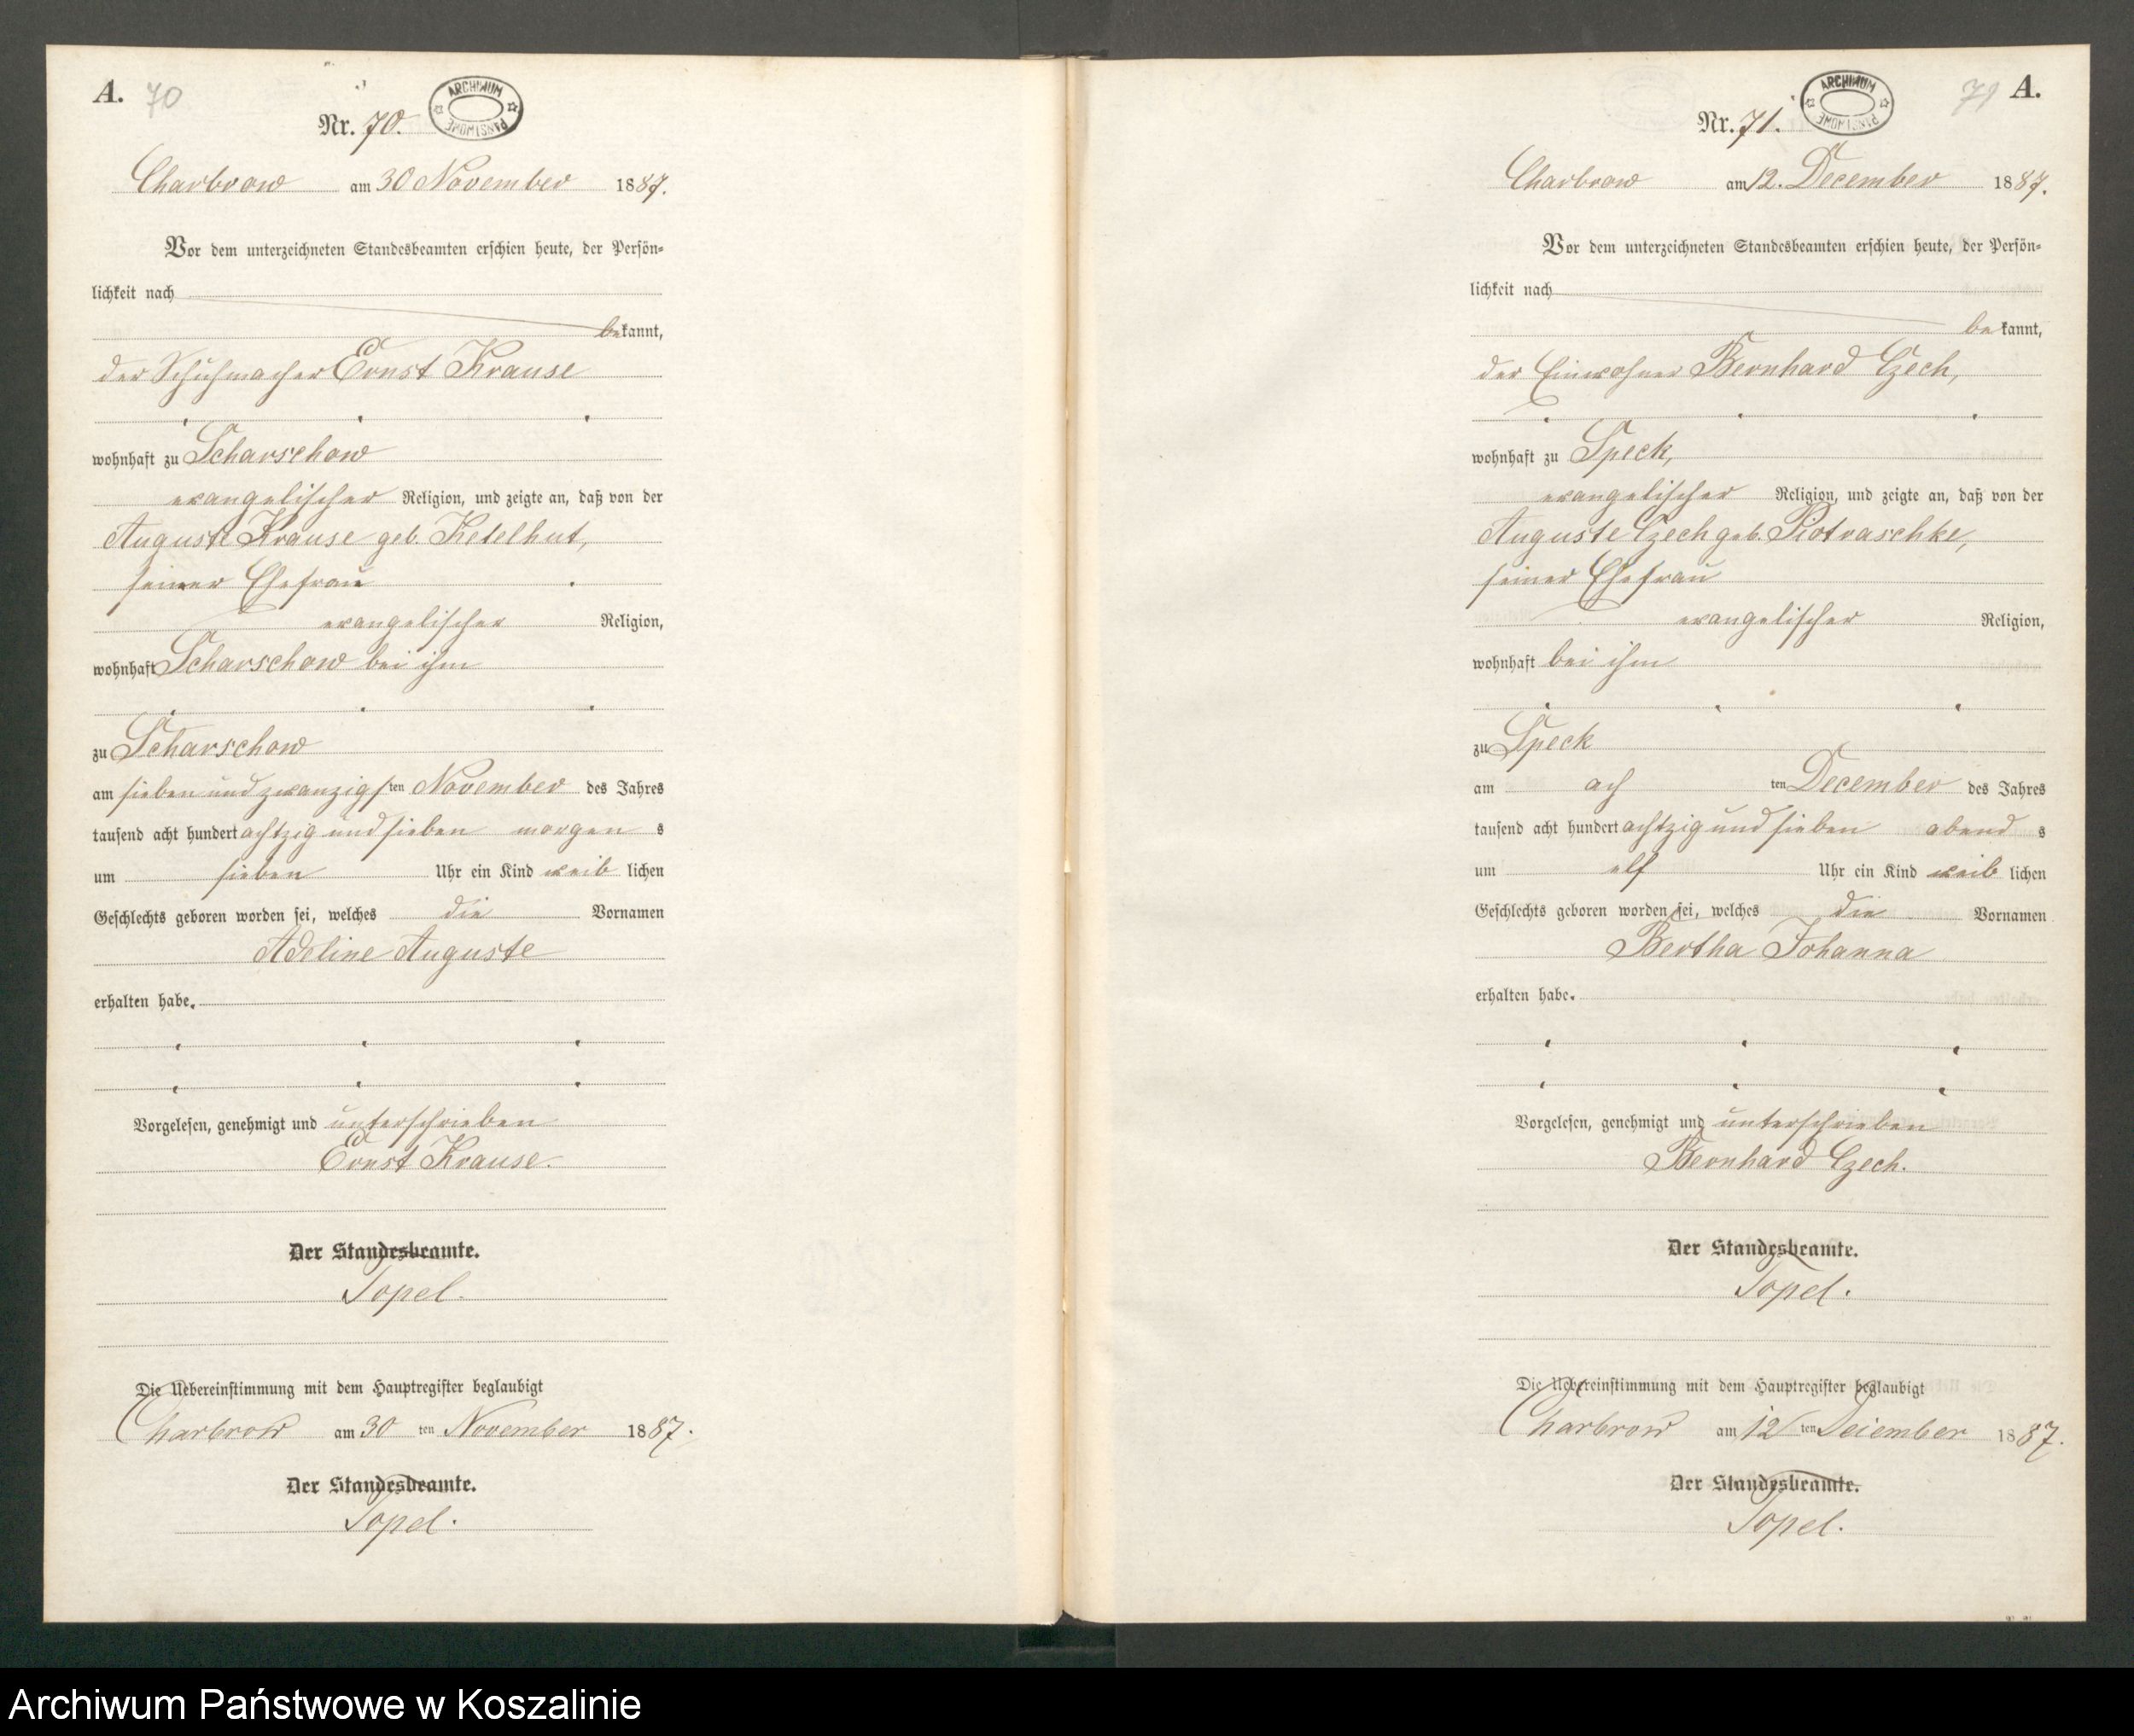 A. 70
ARCHIWUM PAŃSTWOWE
Nr. 70.
Charbrow am 30 November 1887.
Vor dem unterzeichneten Standesbeamten erschien heute, der Persön-
lichkeit nach
bekannt,
der Schuhmacher Ernst Krause
wohnhaft zu Scharschow
evangelischer Religion, und zeigte an, daß von der
Auguste Krause geb. Ketelhut,
seiner Ehefrau
evangelischer Religion,
wohnhaft Scharschow bei ihm
zu Scharschow
am sieben und zwanzigsten November des Jahres
tausend acht hundert achtzig und sieben morgens
um sieben Uhr ein Kind weiblichen
Geschlechts geboren worden sei, welches die Vornamen
Adeline Auguste
erhalten habe.
Vorgelesen, genehmigt und unterschrieben
Ernst Krause.
Der Standesbeamte.
Topel.
Die Uebereinstimmung mit dem Hauptregister beglaubigt
Charbrow am 30 ten November 1887.
Der Standesbeamte.
Topel.
71 A.
ARCHIWUM PAŃSTWOWE
Nr. 71.
Charbrow am 12. December 1887.
Vor dem unterzeichneten Standesbeamten erschien heute, der Persön-
lichkeit nach
bekannt,
der Einwohner Bernhard Czech,
wohnhaft zu Speck,
evangelischer Religion, und zeigte an, daß von der
Auguste Czech geb. Piotraschke,
seiner Ehefrau
evangelischer Religion,
wohnhaft bei ihm
zu Speck
am ach ten December des Jahres
tausend acht hundert achtzig und sieben abends
um elf Uhr ein Kind weiblichen
Geschlechts geboren worden sei, welches die Vornamen
Bertha Johanna
erhalten habe.
Vorgelesen, genehmigt und unterschrieben
Bernhard Czech.
Der Standesbeamte.
Topel.
Die Uebereinstimmung mit dem Hauptregister beglaubigt
Charbrow am 12 ten December 1887.
Der Standesbeamte.
Topel.
Archiwum Państwowe w Koszalinie